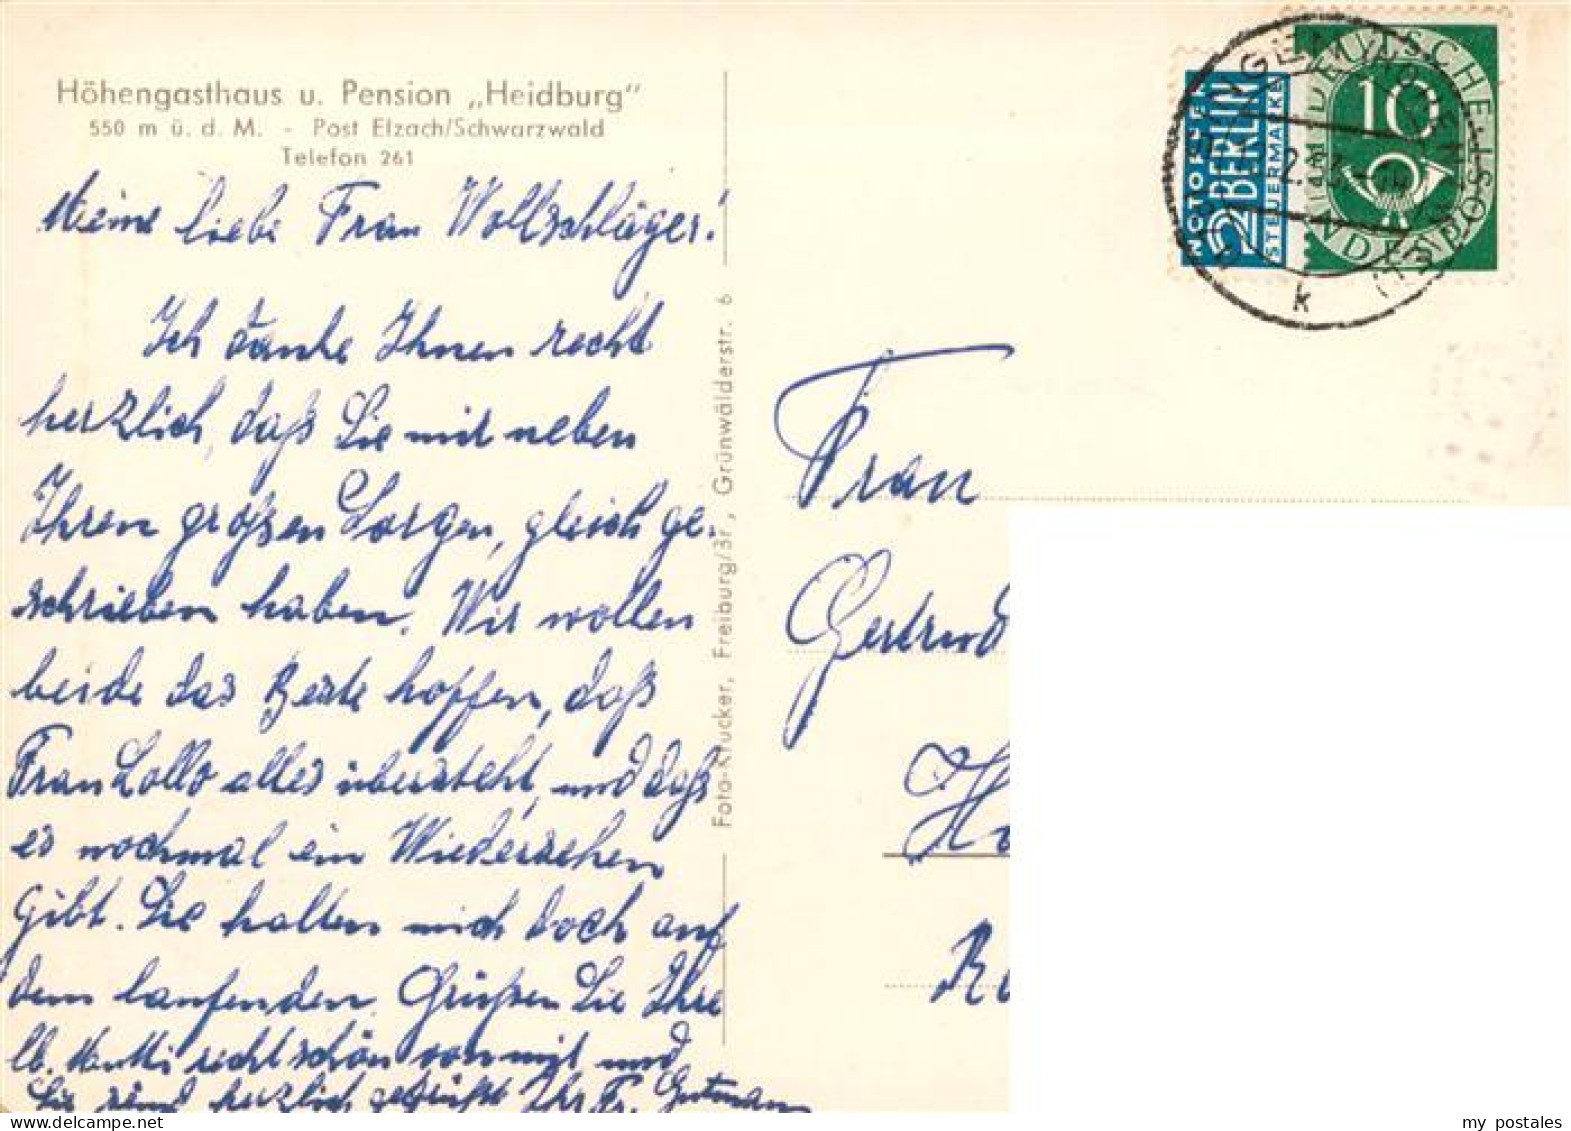 Höhengasthaus u. Pension „Heidburg"
550 m ü. d. M. - Post Elzach/Schwarzwald
Telefon 261
Meine liebe Frau Wollschläger!
Ich danke Ihnen recht
herzlich, daß Sie mir neben
Ihren großen Sorgen, gleich ge-
schrieben haben. Wir wollen
beide das Beste hoffen, daß
Frau Lollo alles übersteht, und daß
es nochmal ein Wiedersehen
gibt. Sie halten mich doch auf
dem laufenden. Grüßen Sie Ihre
lb. Mutti recht schön von mir und
Sie sind herzlich gegrüßt Ihr Fr. Gutmann
Foto-Krucker, Freiburg/Br., Grünwälderstr. 6
NOTOPFER
2 BERLIN
STEUERMARKE
DEUTSCHE POST
10
k
Frau
Gertrud